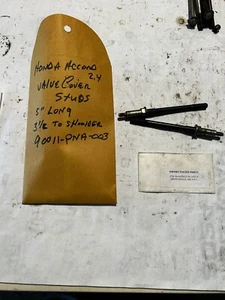 HONDA ACCORD
2.4
VALVE COVER
STUDS
5" LONG
3 1/2 TO SHOULDER
90011-PNA-003